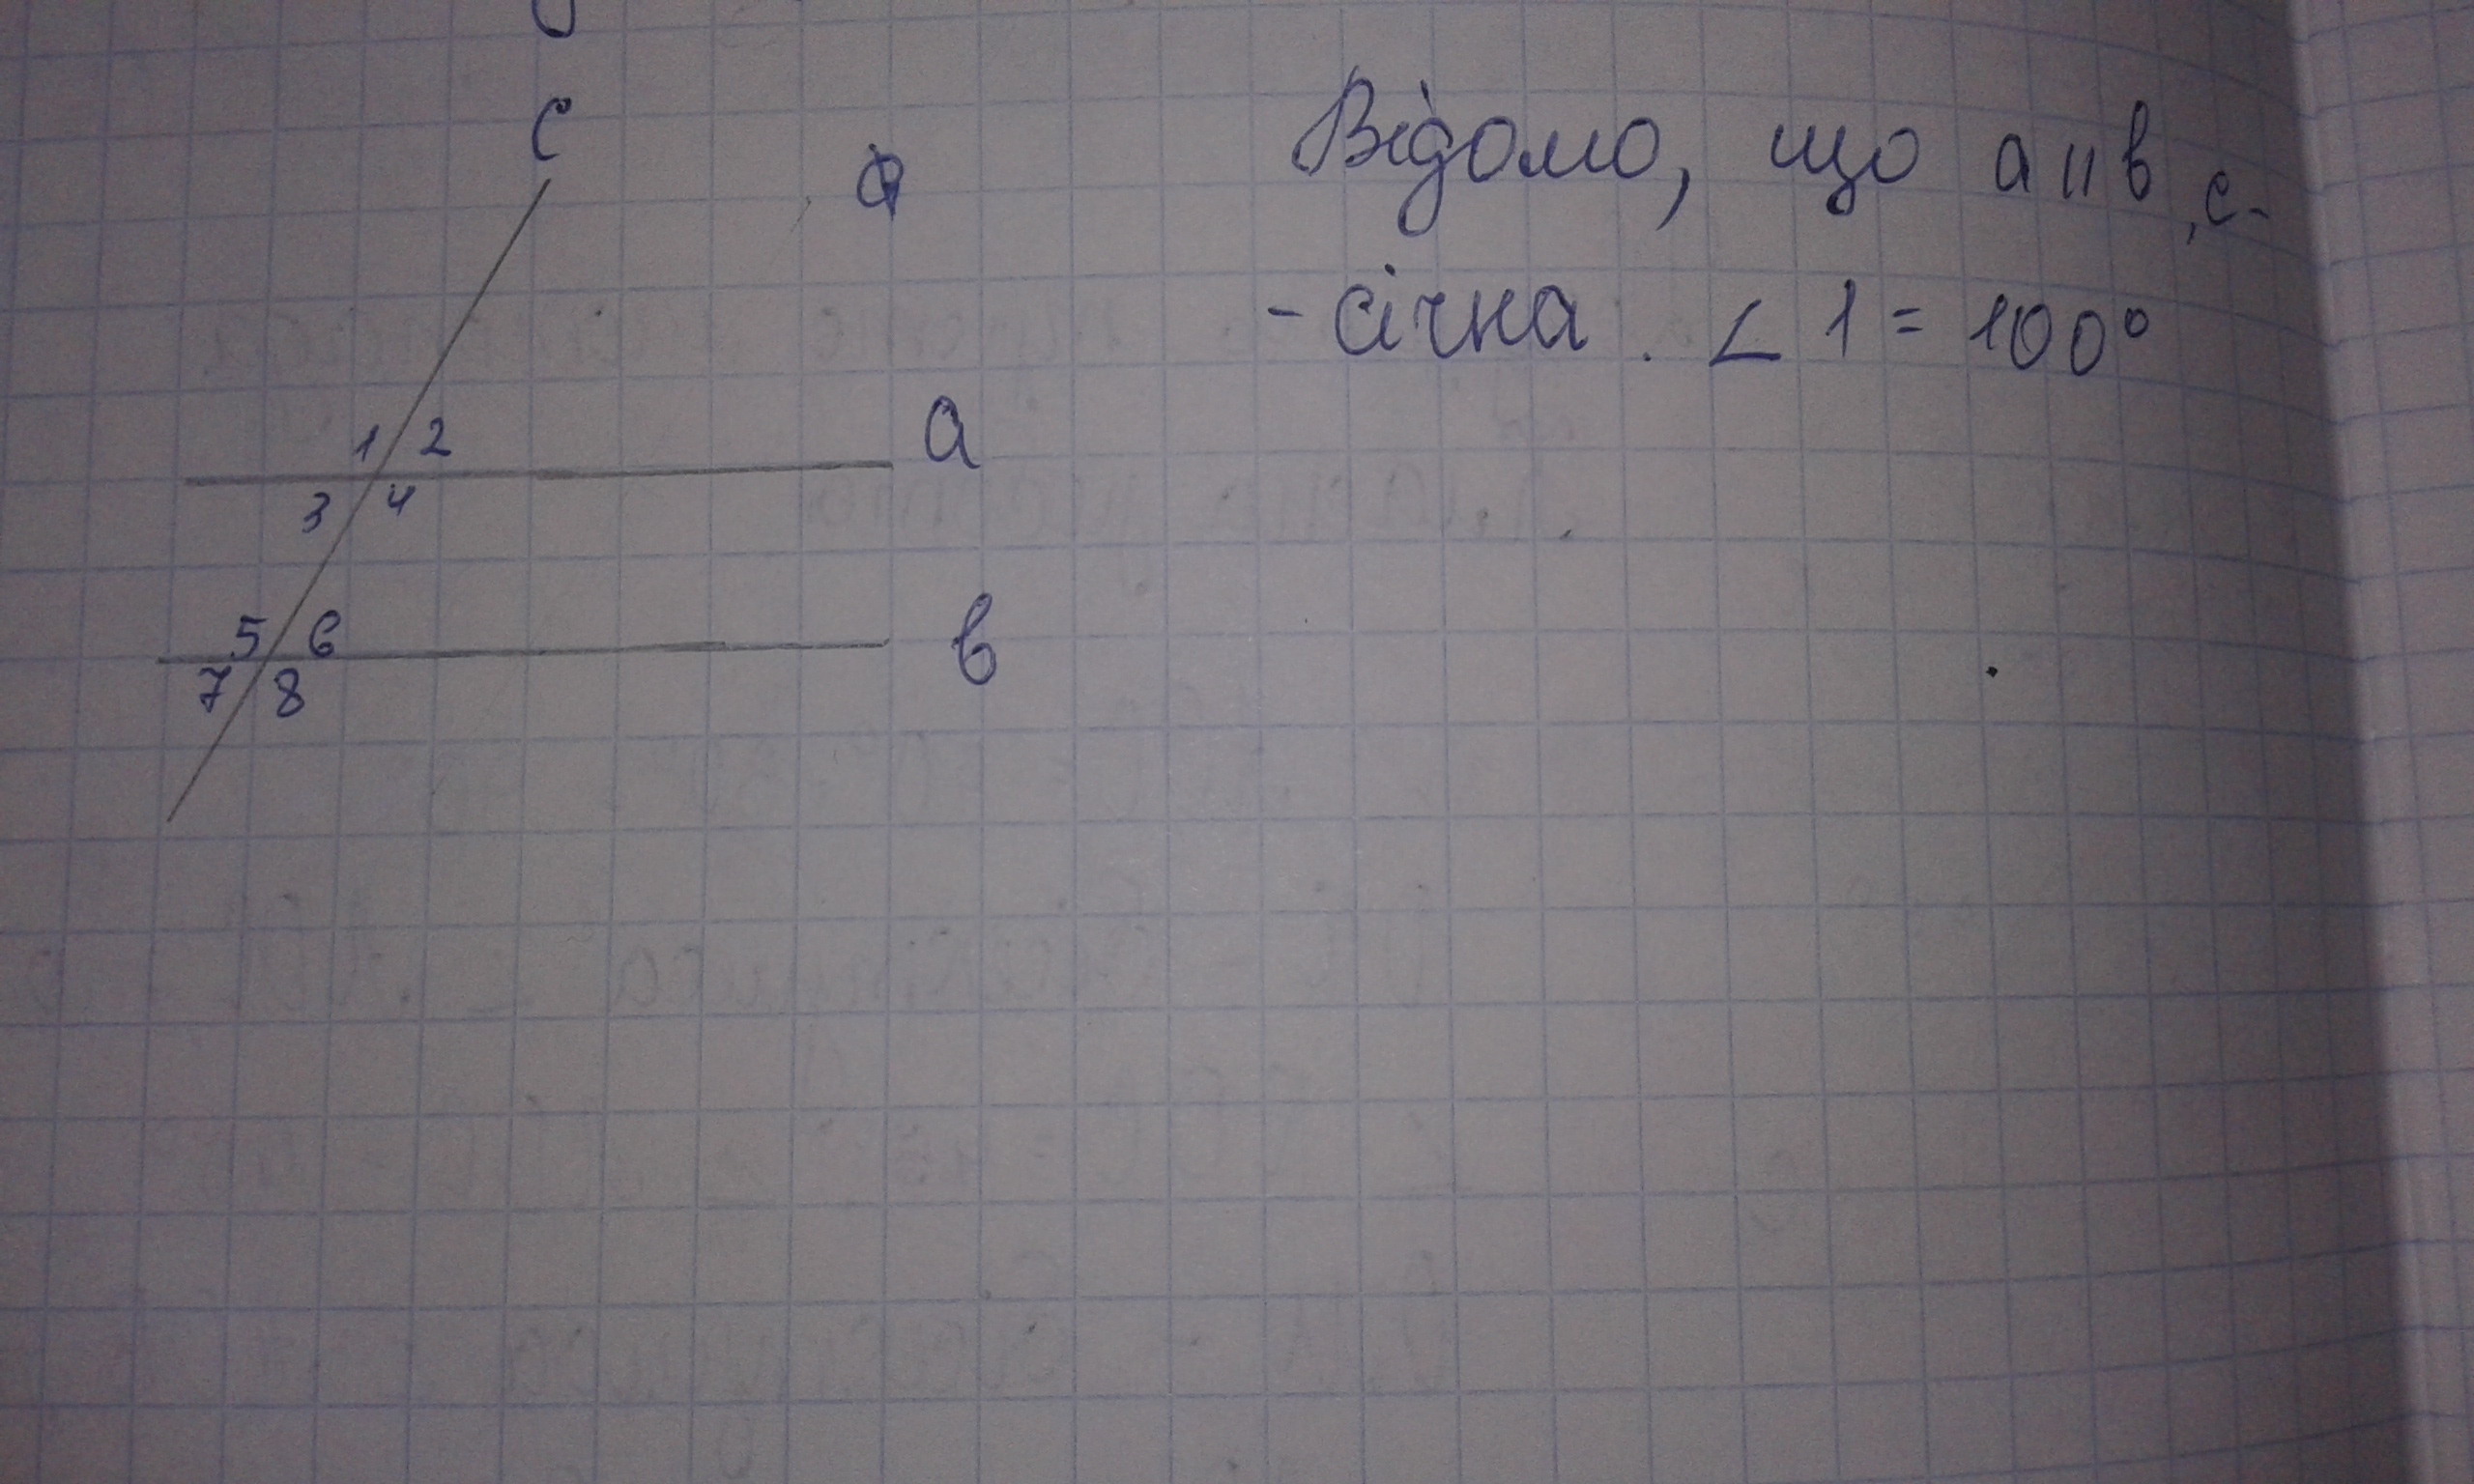 c
Відомо, що a || в, c-
- січна. ∠ 1 = 100°
1 2
a
3 4
5 6
в
7 8